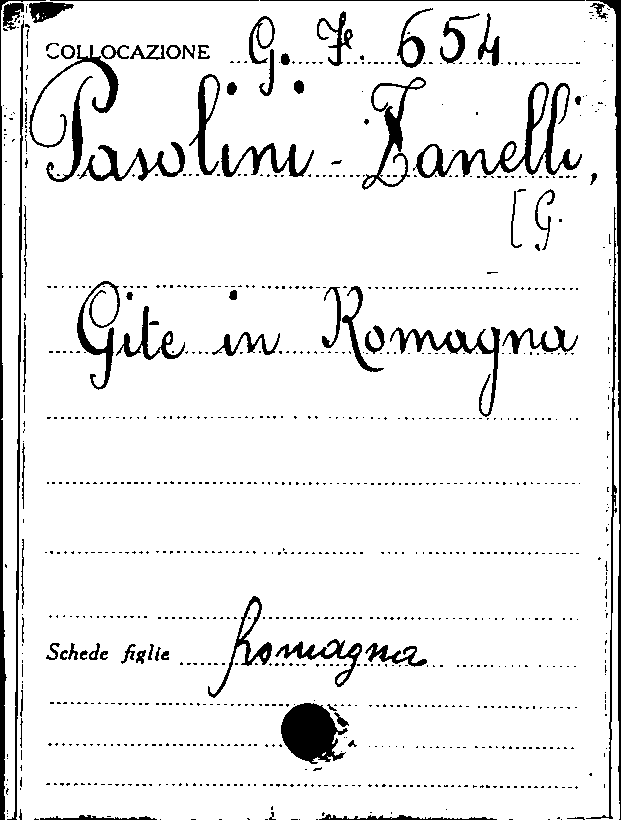 COLLOCAZIONE G. F. 654
Pasolini-Zanelli,
[G.
Gite in Romagna
Schede figlie Romagna